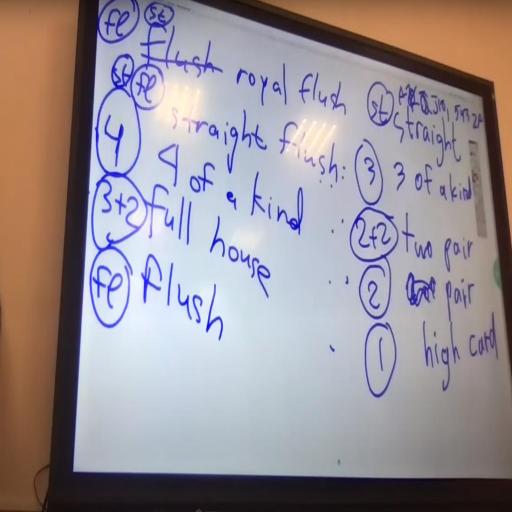 fl st
Flush royal flush
st fl straight flush
4 4 of a kind
3+2 full house
fl flush
st straight
3 3 of a kind
2+2 two pair
2 pair
1 high card